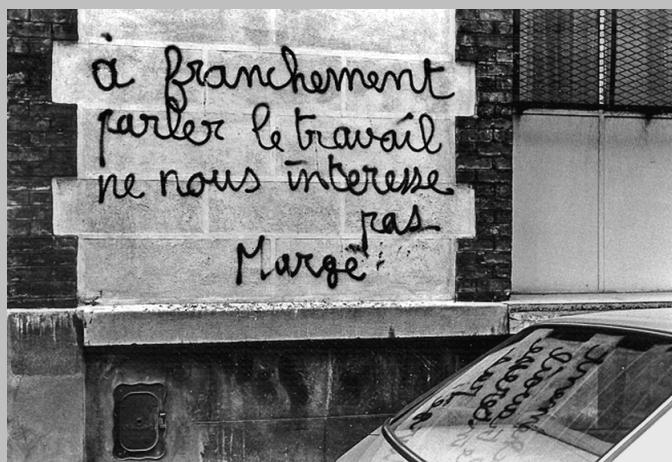 à franchement
parler le travail
ne nous interesse
pas
Marge